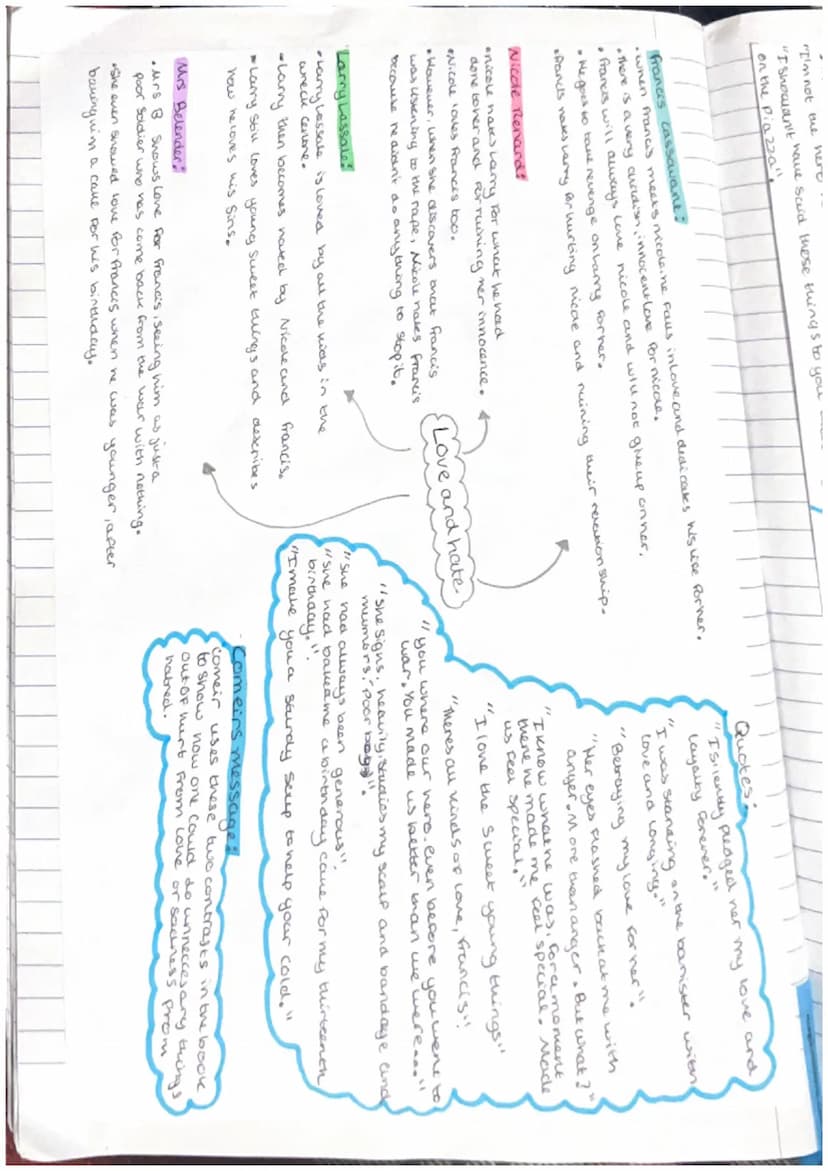 "I'm not the hero
"I shouldn't have said those things to you
on the piazza".
Frances Cassavant:
• When Francis meets nicole, he falls in love and dedicates his life for her.
• There is a very childish, innocent love for nicole.
• Francis will always love nicole and will not give up on her.
• He goes to take revenge on Larry for her.
• Francis hates Larry for hurting nicole and ruining their relationship.
Nicole Renard:
• Nicole hates Larry for what he had
done to her and for ruining her innocence.
• Nicole loves Francis too.
• However, when she discovers that Francis
was listening to the rape, Nicole hates Francis
because he didn't do anything to stop it.
Larry Lassale:
• Larry Lassale is loved by all the kids in the
wreck centre.
• Larry then becomes hated by Nicole and Francis.
• Larry still loves young sweet things and describes
how he loves his sins.
Mrs Belander:
• Mrs B shows love for Francis, seeing him as just a
poor soldier who has come back from the war with nothing.
• She even showed love for Francis when he was younger, after
baking him a cake for his birthday.
Love and hate
Quotes:
"I silently pledged her my love and
loyalty forever."
"I was standing on the banister with
love and longing."
"Betraying my love for her".
"Her eyes flashed back at me with
anger. More than anger. But what?"
"I know what he was, for a moment
there he made me feel special. Made
us feel special."
"I love the sweet young things"
"Theres all kinds of love, Francis".
"You where our hero. Even before you went to
war. You made us better than we were..."
"She sighs, heavily, studies my scalp and bandage and
mumbors: 'poor boy'".
"She had always been generous".
"She had baked me a birthday cake for my thirteenth
birthday."
"I make you a sturdy soup to help your cold."
Comeirs message:
Comeir uses these two contrasts in the book
to show how one could do unneccesary things
out of hurt from love or sadness from
hatred.